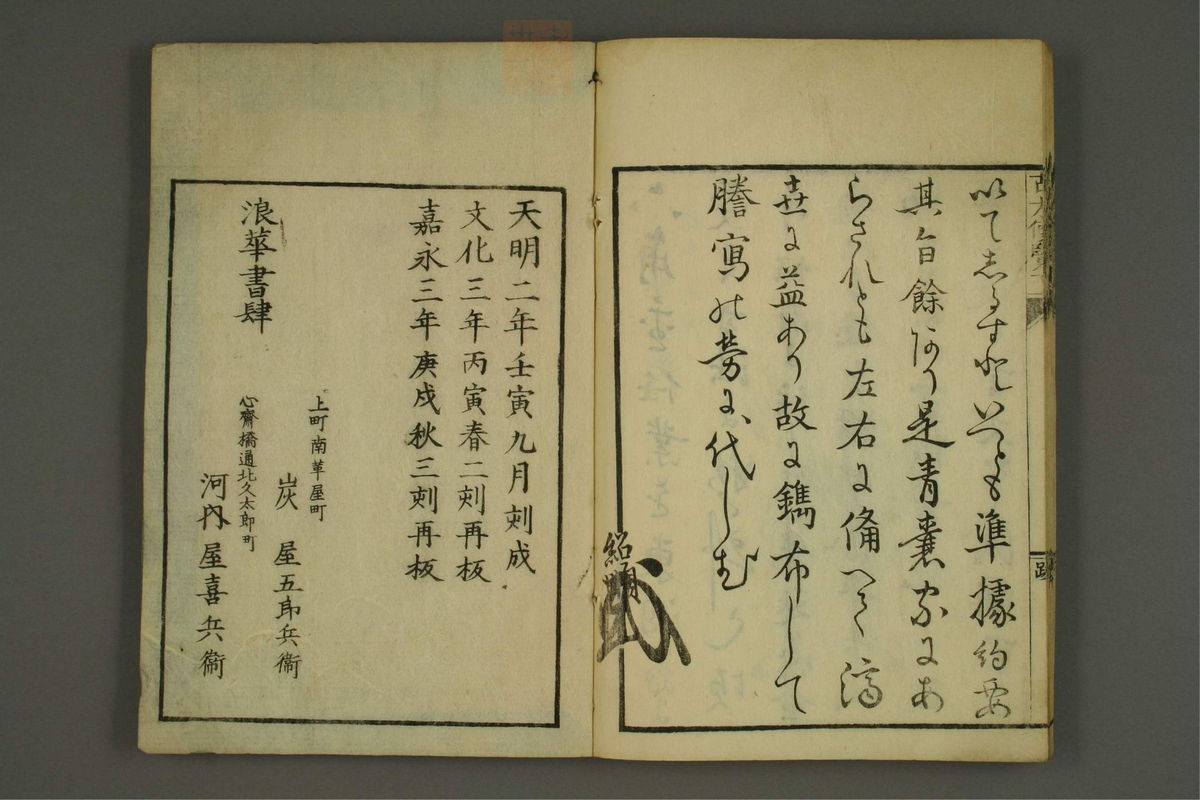 以てしるすといへとも準據約要
其旨餘あり是青嚢家にあ
らされとも左右に備へて済
世に益あり故に鐫布して
謄寫の労に代しむ
紹明
跋
天明二年壬寅九月刻成
文化三年丙寅春二刻再板
嘉永三年庚戌秋三刻再板
浪華書肆
上町南革屋町
炭屋五郎兵衞
心齋橋通北久太郎町
河内屋喜兵衞